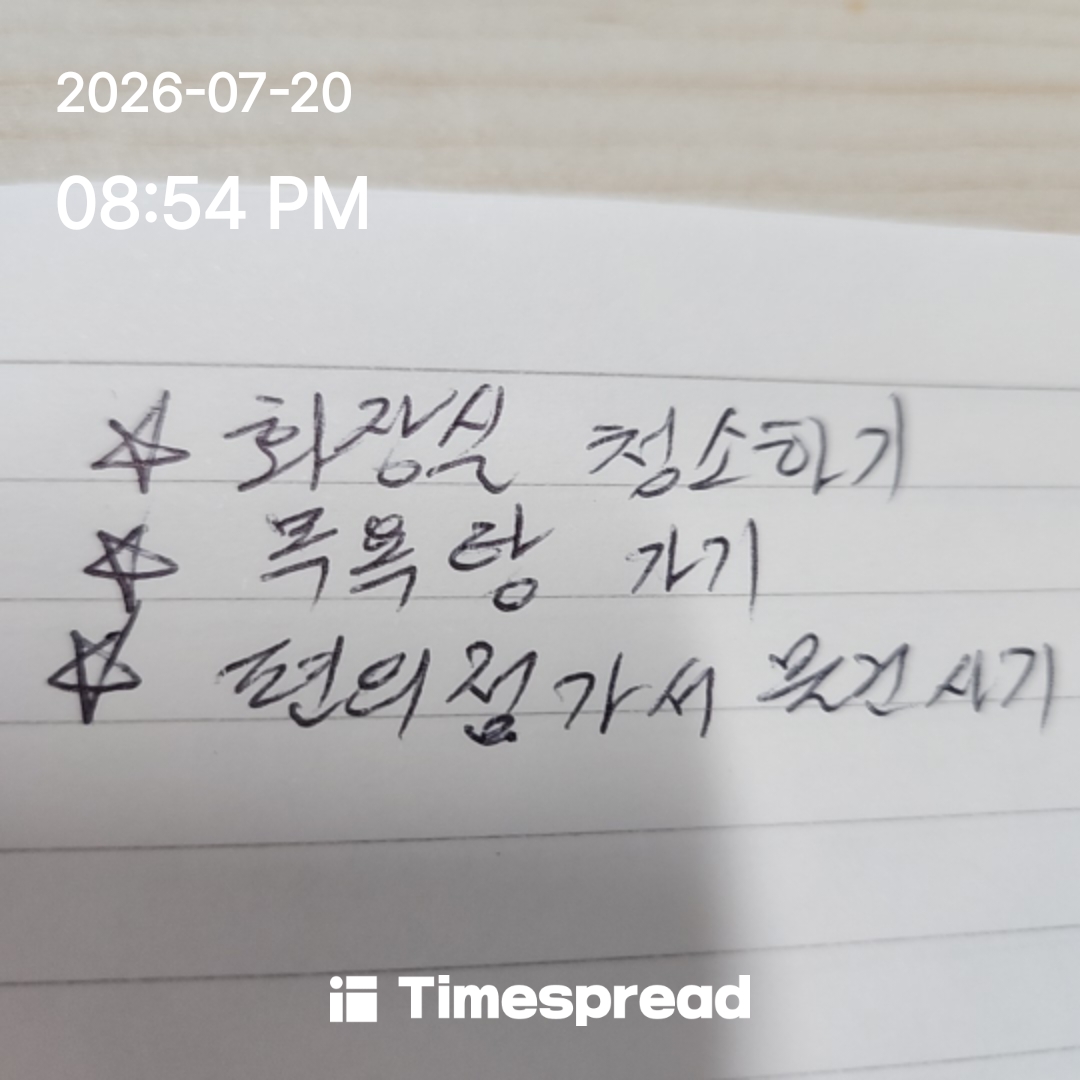 2026-07-20
08:54 PM
☆ 화장실 청소하기
☆ 목욕탕 가기
☆ 편의점 가서 물건 사기
Timespread